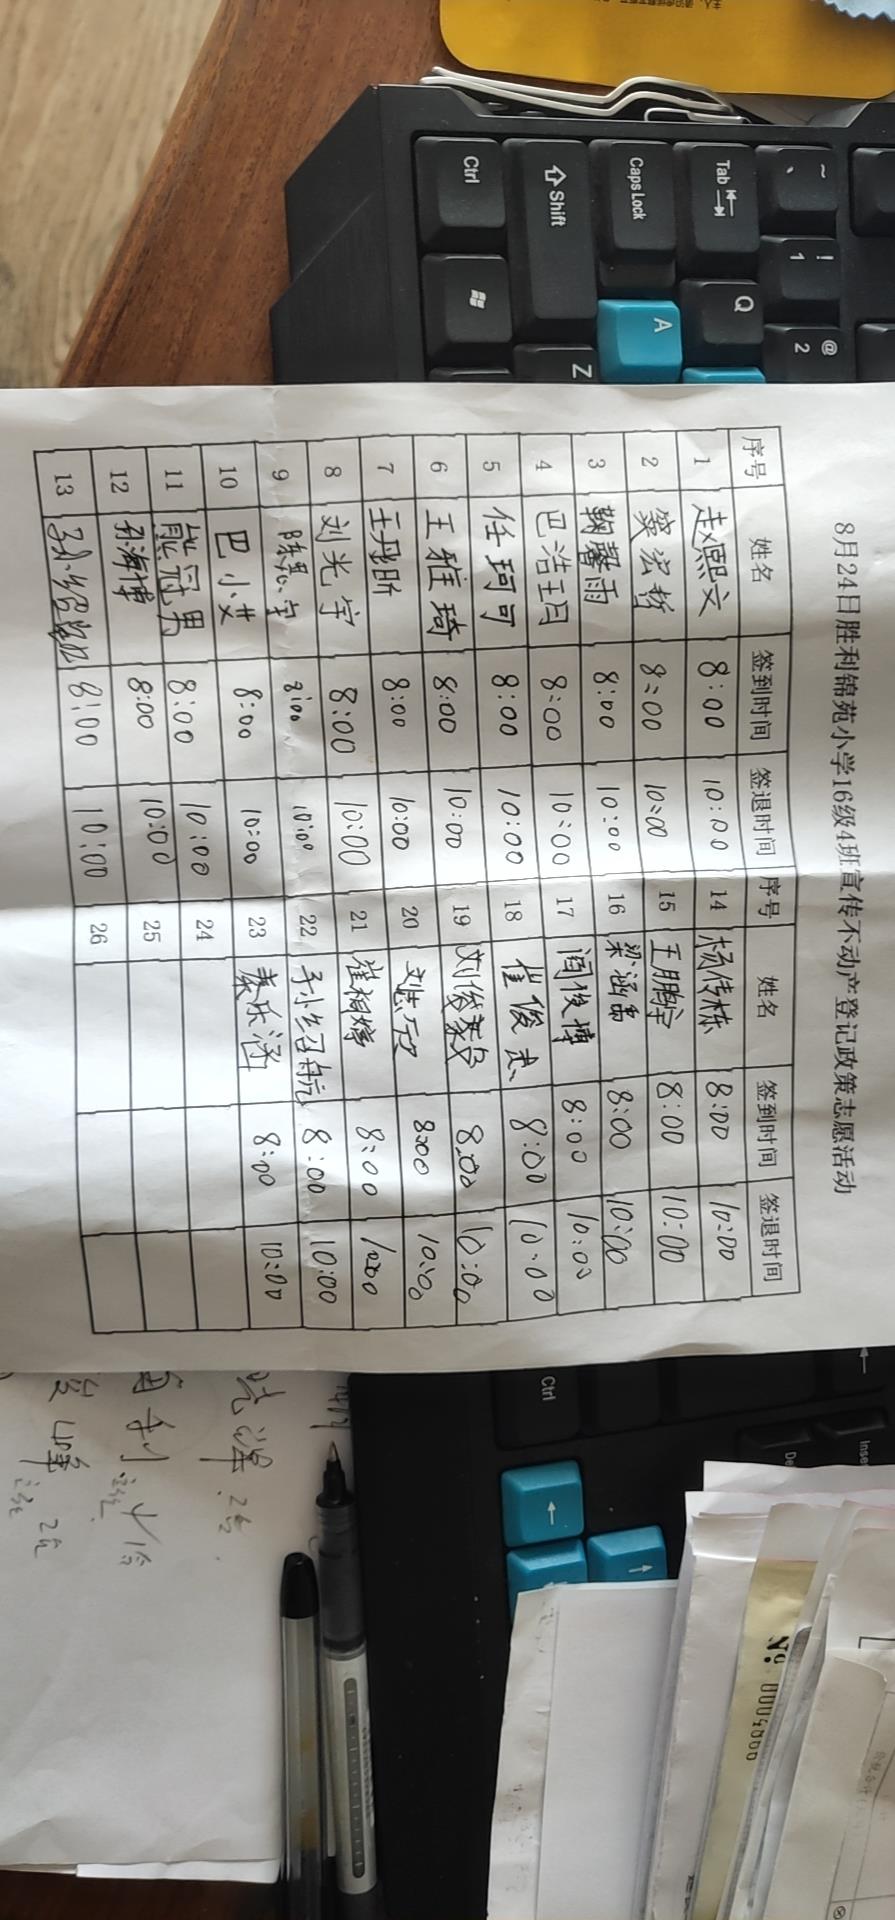 8月24日胜利锦苑小学16级4班宣传不动产登记政策志愿活动
序号 姓名 签到时间 签退时间 序号 姓名 签到时间 签退时间
1 赵熙文 8:00 10:00 14 杨传栋 8:00 10:00
2 窦宏哲 8:00 10:00 15 王鹏宇 8:00 10:00
3 鞠馨雨 8:00 10:00 16 梁涵禹 8:00 10:00
4 巴浩玥 8:00 10:00 17 闫俊博 8:00 10:00
5 任珂可 8:00 10:00 18 崔俊杰 8:00 10:00
6 王雅琦 8:00 10:00 19 刘俊 8:00 10:00
7 王丹昕 8:00 10:00 20 刘志 8:00 10:00
8 刘光宇 8:00 10:00 21 崔桐婷 8:00 10:00
9 陈思宇 8:00 10:00 22 孙绍航 8:00 10:00
10 巴小艾 8:00 10:00 23 秦乐涵 8:00 10:00
11 熊冠男 8:00 10:00 24
12 孙海博 8:00 10:00 25
13 孙绍 8:00 10:00 26
~ 、 ! 1 @ 2
Tab Q
Caps Lock A
Shift Z
Ctrl
Ctrl
Inse
De
№ 0004000